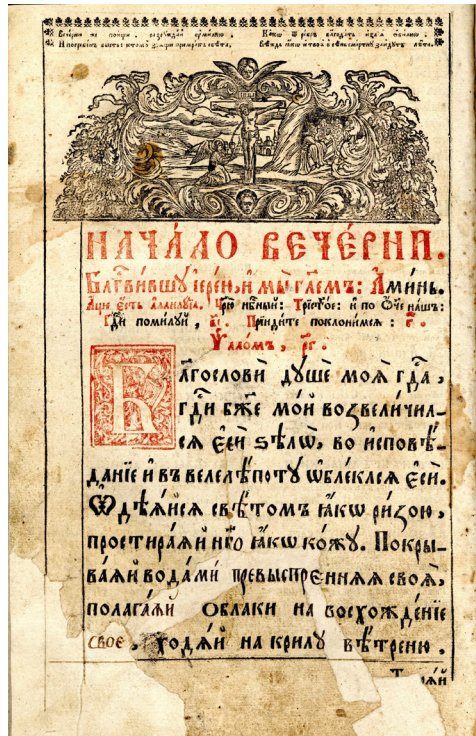 НАЧА́ЛО ВЕЧЕ́РНИ.
Бл҃гви́вшꙋ і҆ере́ю, и҆ мы̀ гл҃емъ: А҆ми́нь.
А҆́ще є҆́сть А҆ллилꙋ́їа. Цр҃ю̀ нбⷭ҇ный: Трист҃о́е: и҆ по Ѻ҆́ч҃е на́шъ:
Гдⷭ҇и поми́лꙋй, в҃і. Прїиди́те поклони́мсѧ: г҃.
Ѱало́мъ, рг҃.
Бл҃гословѝ дꙋшѐ моѧ̀ гдⷭ҇а,
гдⷭ҇и бж҃е мо́й возвели́чил-
сѧ є҆сѝ ѕѣлѡ̀, во и҆сповѣ́-
данїе и҆ въ велелѣ́потꙋ ѡ҆бле́клсѧ є҆сѝ.
Ѡ҆дѣѧ́йсѧ свѣ́томъ ꙗ҆́кѡ ри́зою,
простира́ѧй нб҃о ꙗ҆́кѡ ко́жꙋ. Покры-
ва́ѧй вода́ми превы́спреннѧѧ своѧ̀,
полага́ѧй облаки на восхожде́нїе
свое, ходѧ́й на крилꙋ̀ вѣ́треню.